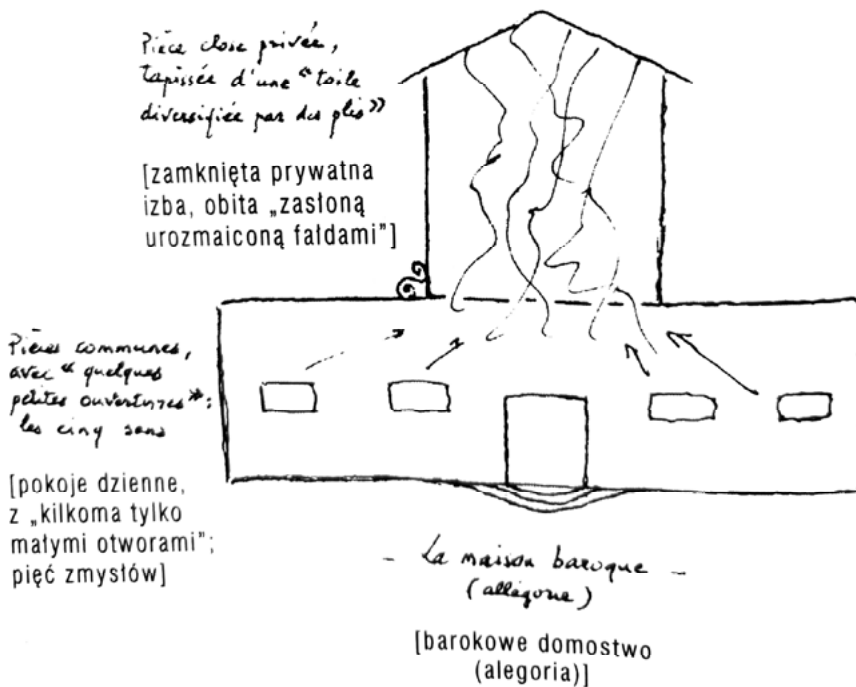 Pièce close privée,
tapissée d'une “toile
diversifiée par des plis”
[zamknięta prywatna
izba, obita „zasłoną
urozmaiconą fałdami”]
Pièces communes,
avec “quelques
petites ouvertures”:
les cinq sens
[pokoje dzienne,
z „kilkoma tylko
małymi otworami”;
pięć zmysłów]
- La maison baroque -
(allégorie)
[barokowe domostwo
(alegoria)]